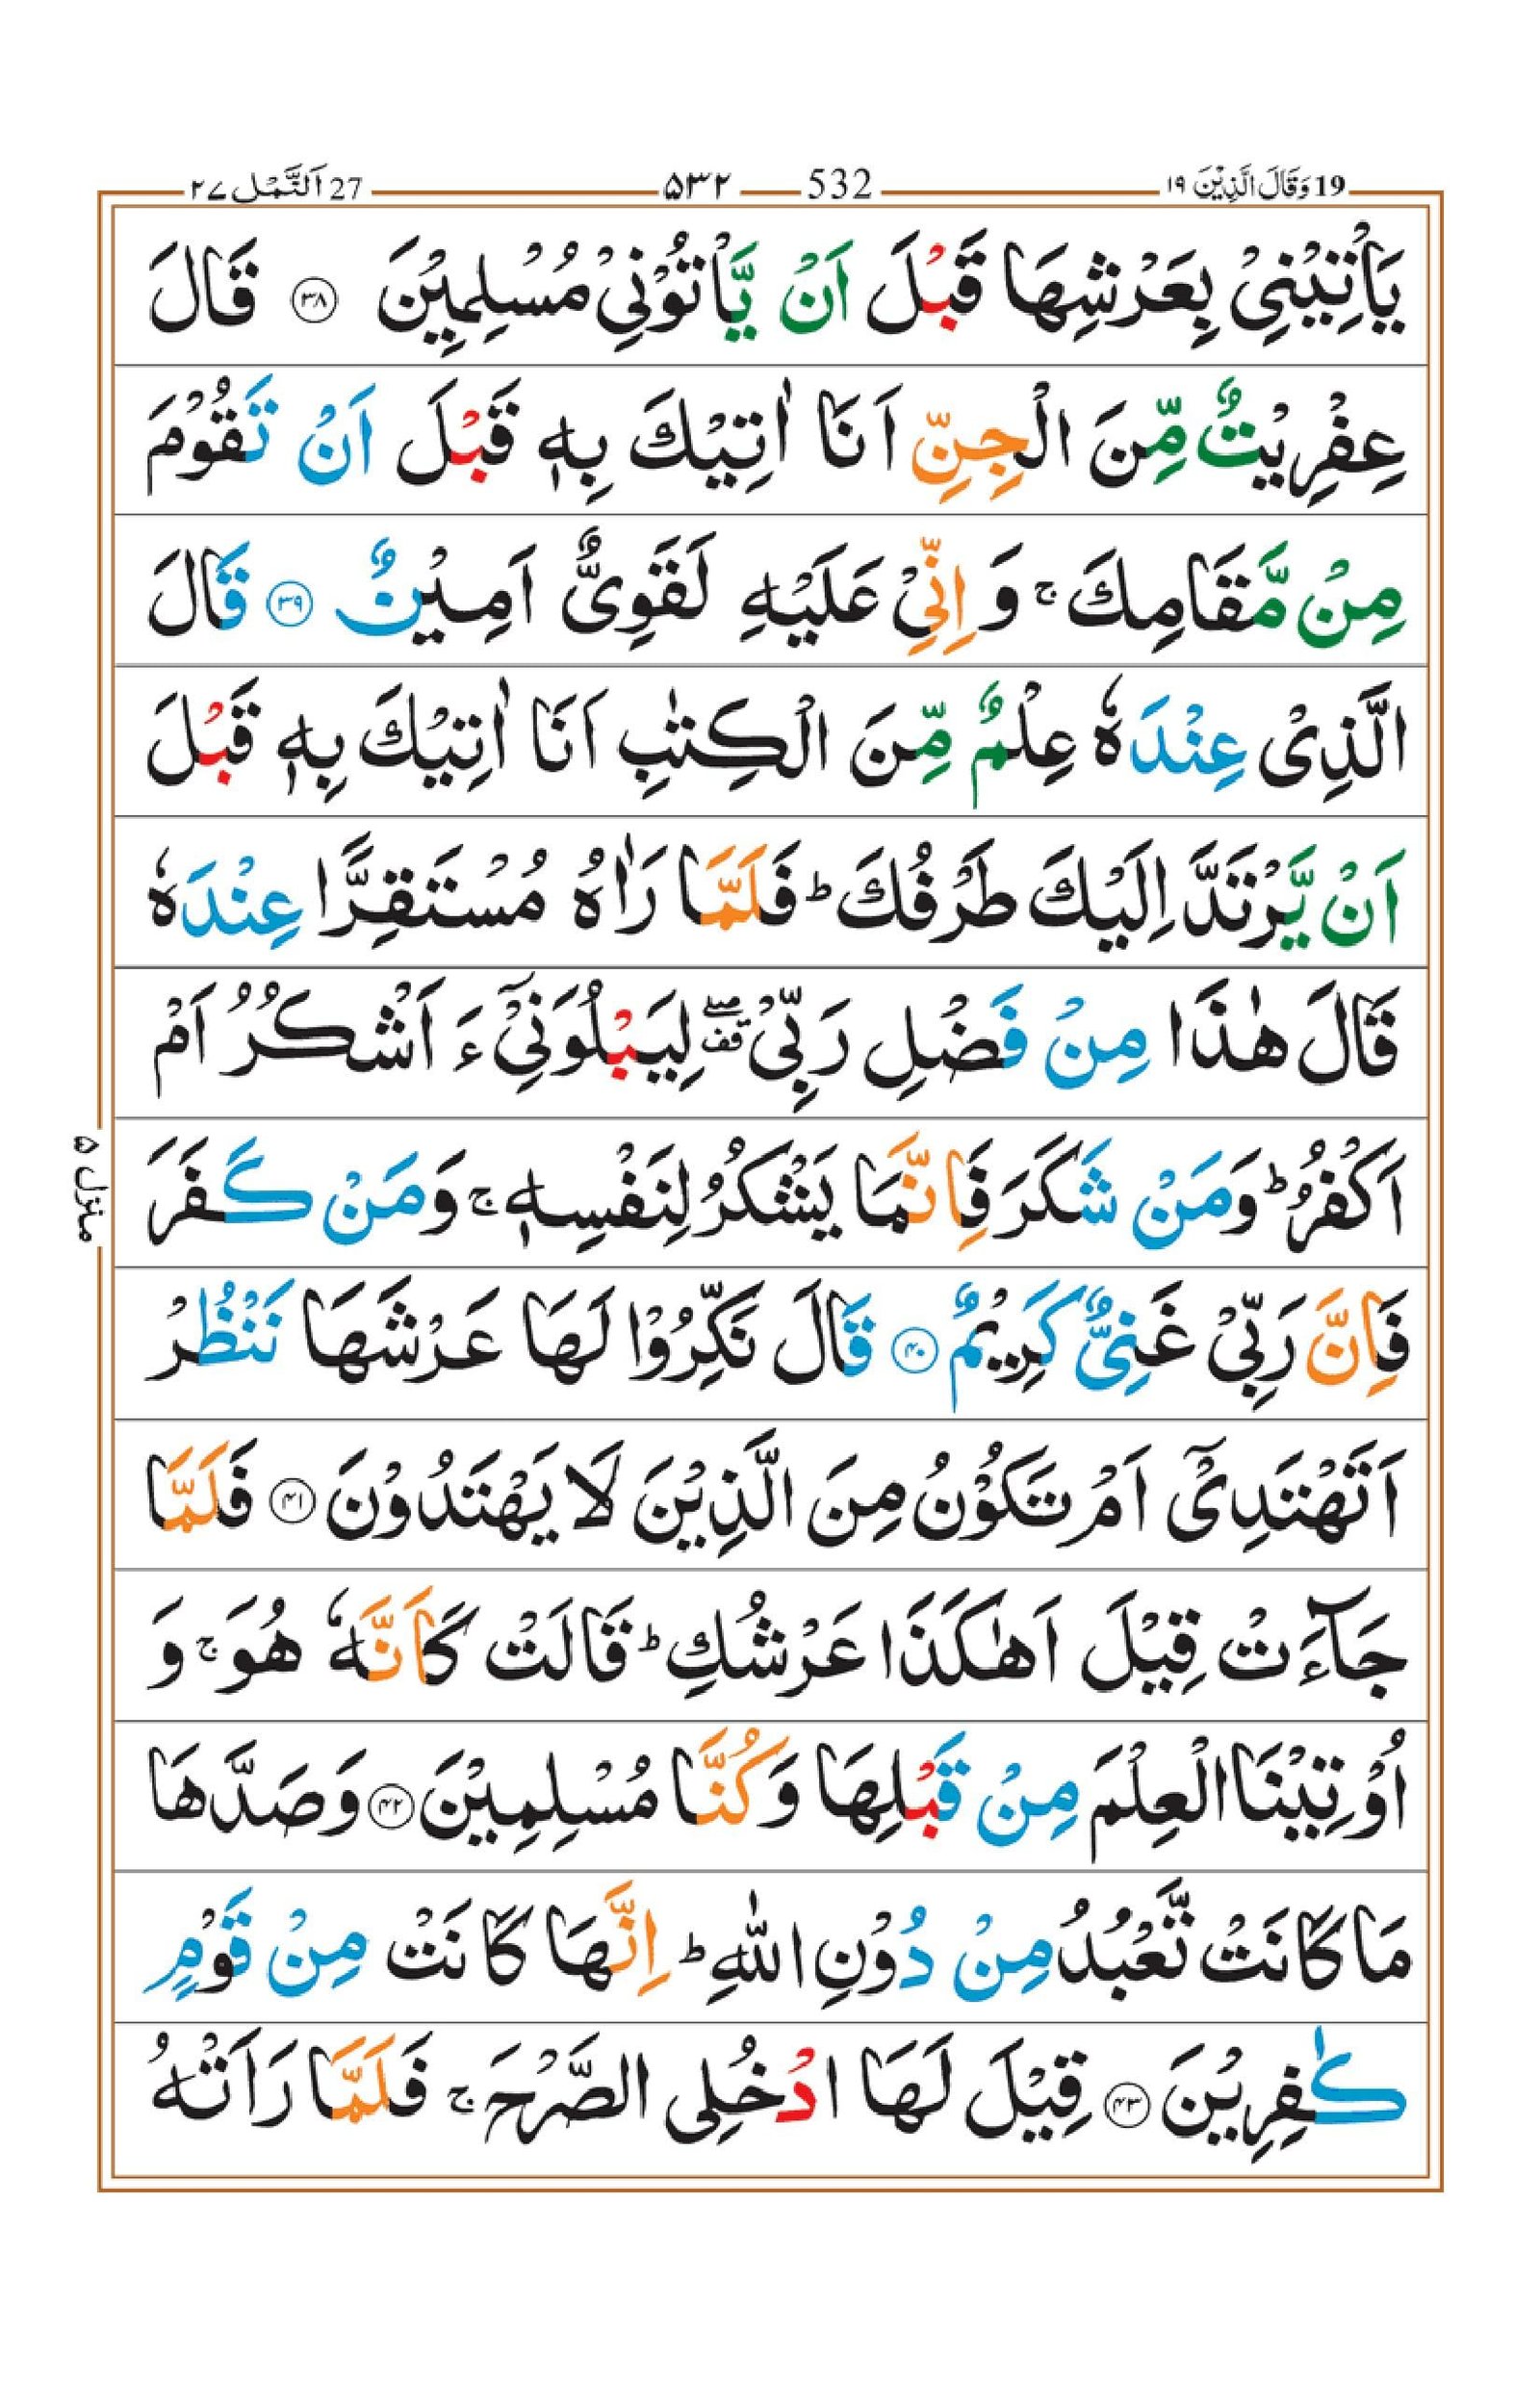 19 وَقَالَ الَّذِیْنَ ۱۹ 532 ۵۳۲ 27 اَلنَّمْل ۲۷
یَاْتِیْنِیْ بِعَرْشِهَا قَبْلَ اَنْ یَّاْتُوْنِیْ مُسْلِمِیْنَ ﴿۳۸﴾ قَالَ
عِفْرِیْتٌ مِّنَ الْجِنِّ اَنَا اٰتِیْكَ بِهٖ قَبْلَ اَنْ تَقُوْمَ
مِنْ مَّقَامِكَ ۚ وَ اِنِّیْ عَلَیْهِ لَقَوِیٌّ اَمِیْنٌ ﴿۳۹﴾ قَالَ
الَّذِیْ عِنْدَهٗ عِلْمٌ مِّنَ الْكِتٰبِ اَنَا اٰتِیْكَ بِهٖ قَبْلَ
اَنْ یَّرْتَدَّ اِلَیْكَ طَرْفُكَ ؕ فَلَمَّا رَاٰهُ مُسْتَقِرًّا عِنْدَهٗ
قَالَ هٰذَا مِنْ فَضْلِ رَبِّیْ ۖ۫ لِیَبْلُوَنِیْۤ ءَ اَشْكُرُ اَمْ
اَكْفُرُ ؕ وَمَنْ شَكَرَ فَاِنَّمَا یَشْكُرُ لِنَفْسِهٖ ۚ وَمَنْ كَفَرَ
فَاِنَّ رَبِّیْ غَنِیٌّ كَرِیْمٌ ﴿۴۰﴾ قَالَ نَكِّرُوْا لَهَا عَرْشَهَا نَنْظُرْ
اَتَهْتَدِیْۤ اَمْ تَكُوْنُ مِنَ الَّذِیْنَ لَا یَهْتَدُوْنَ ﴿۴۱﴾ فَلَمَّا
جَآءَتْ قِیْلَ اَهٰكَذَا عَرْشُكِ ؕ قَالَتْ كَاَنَّهٗ هُوَ ۚ وَ
اُوْتِیْنَا الْعِلْمَ مِنْ قَبْلِهَا وَكُنَّا مُسْلِمِیْنَ ﴿۴۲﴾ وَصَدَّهَا
مَا كَانَتْ تَّعْبُدُ مِنْ دُوْنِ اللّٰهِ ؕ اِنَّهَا كَانَتْ مِنْ قَوْمٍ
كٰفِرِیْنَ ﴿۴۳﴾ قِیْلَ لَهَا ادْخُلِی الصَّرْحَ ۚ فَلَمَّا رَاَتْهُ
منزل ۵